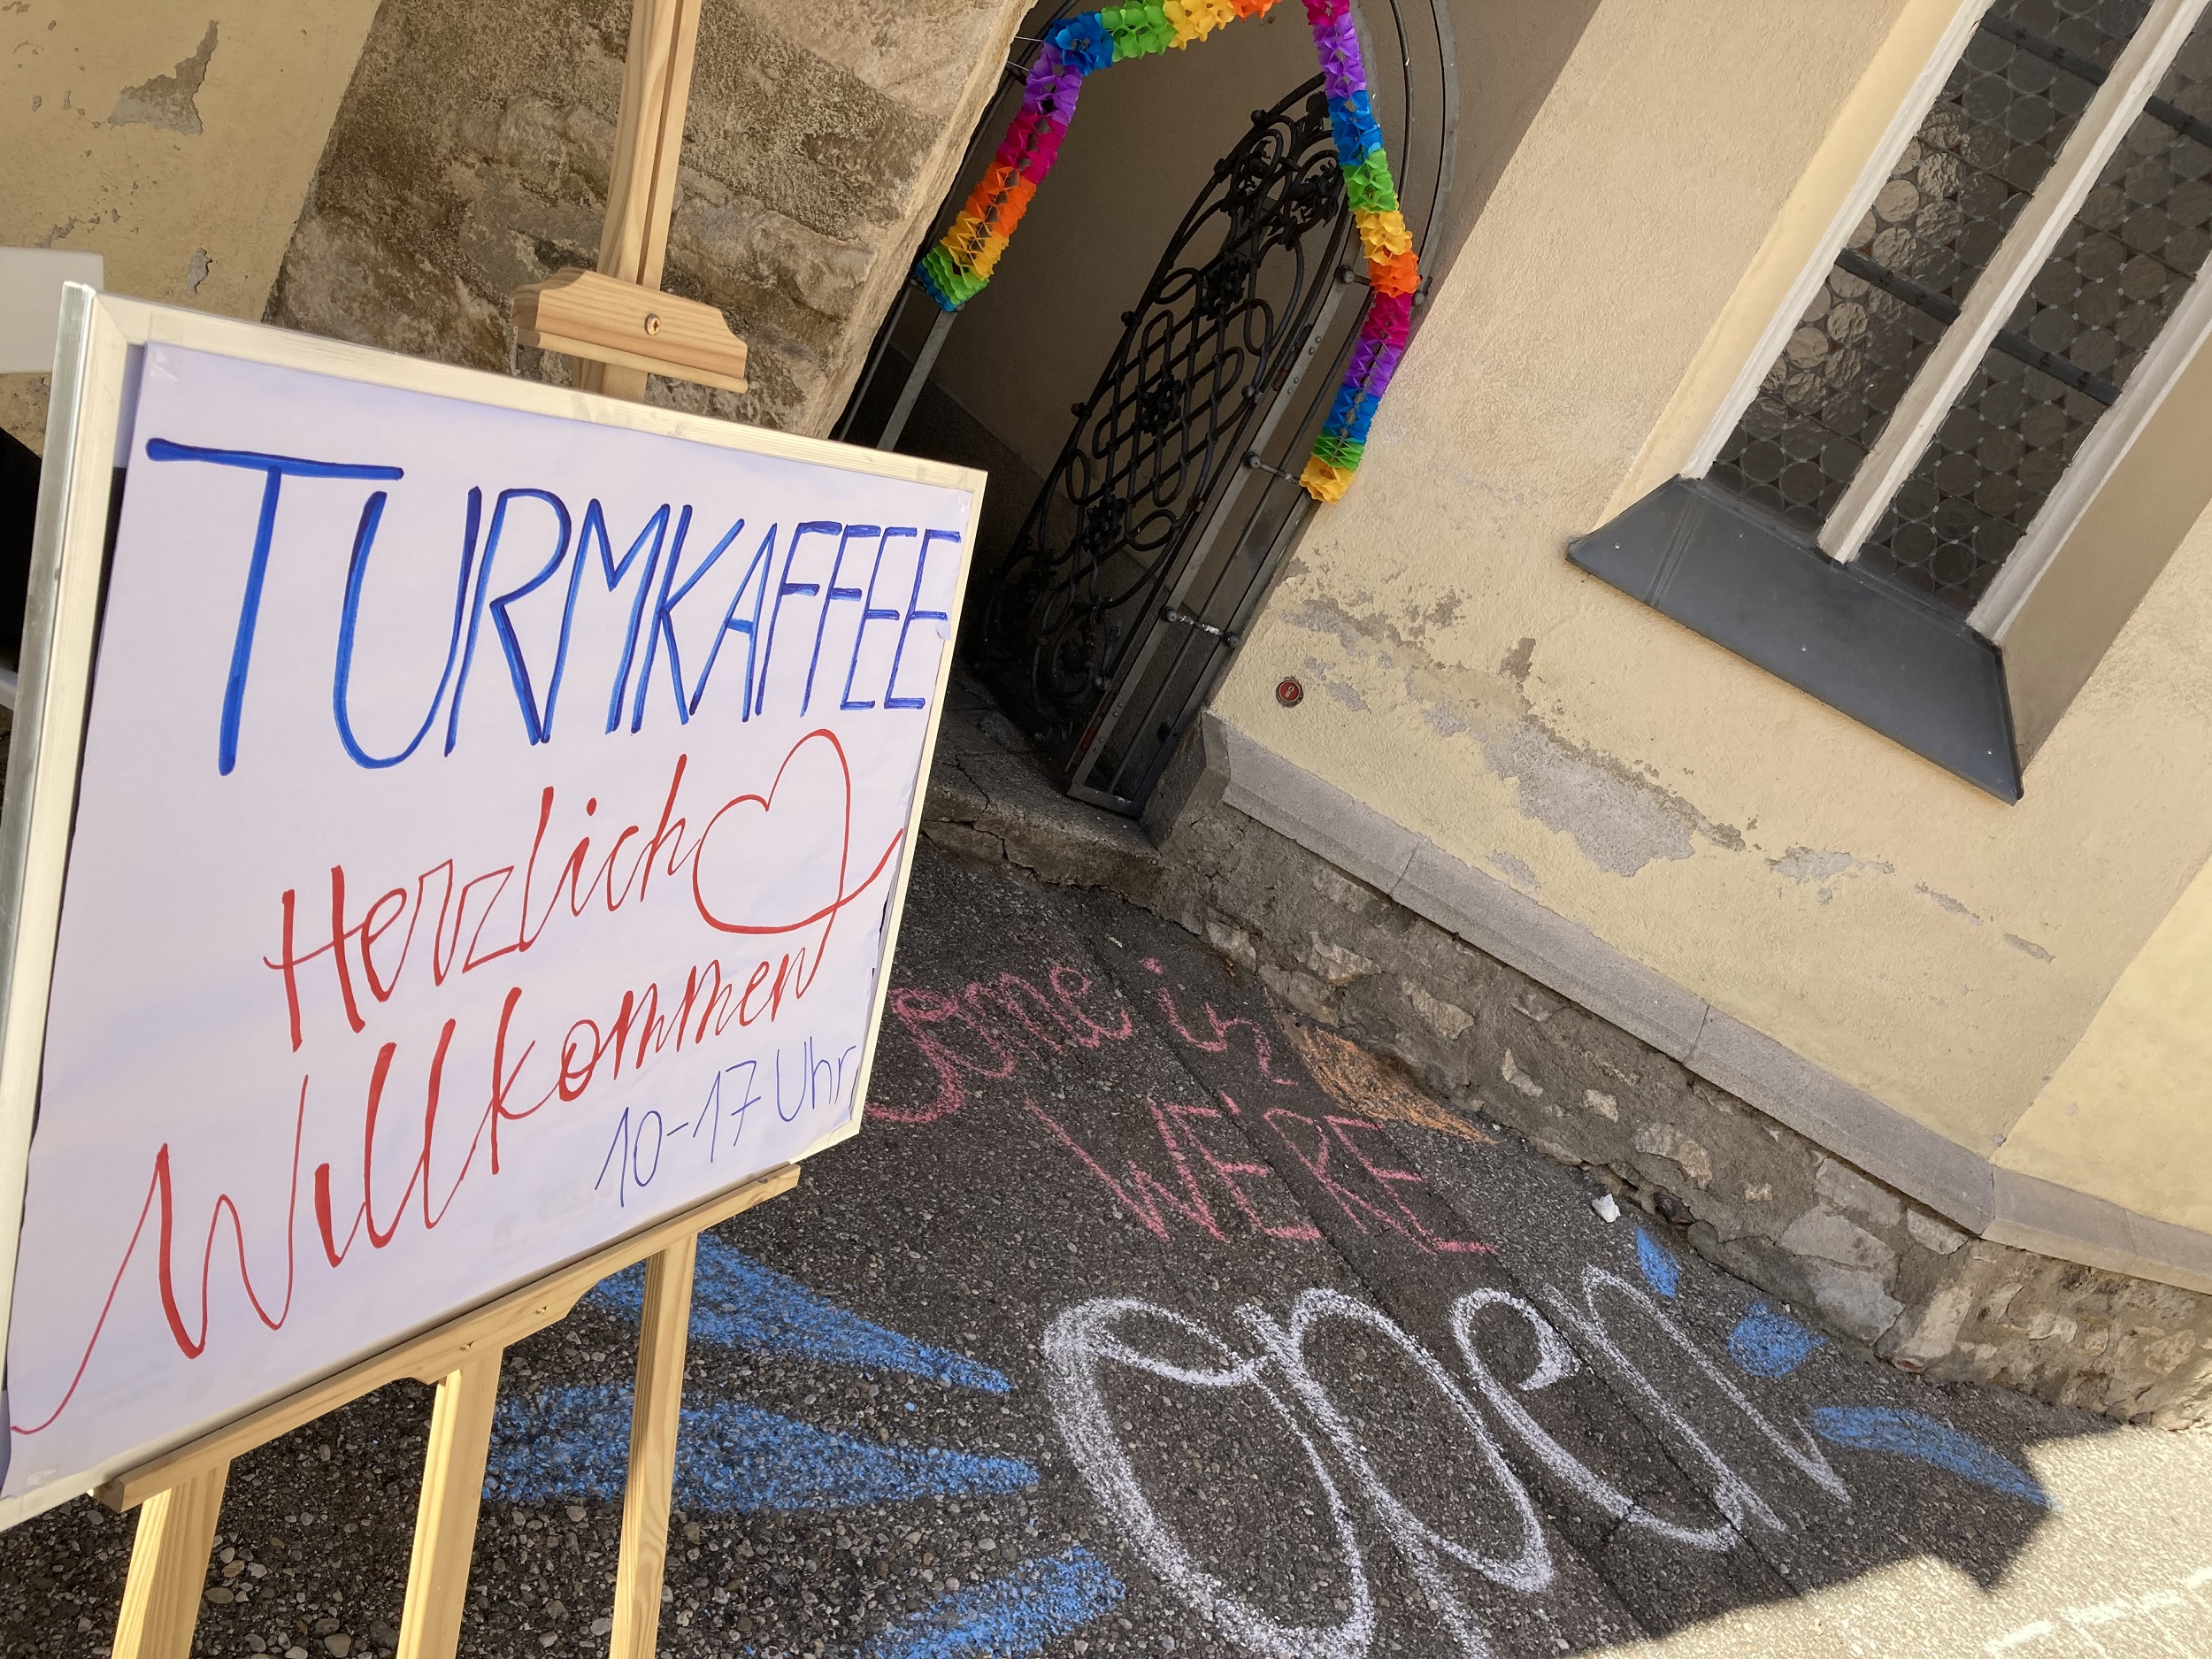 TURMKAFFEE
Herzlich
Willkommen
10-17 Uhr
come in,
WE'RE
open